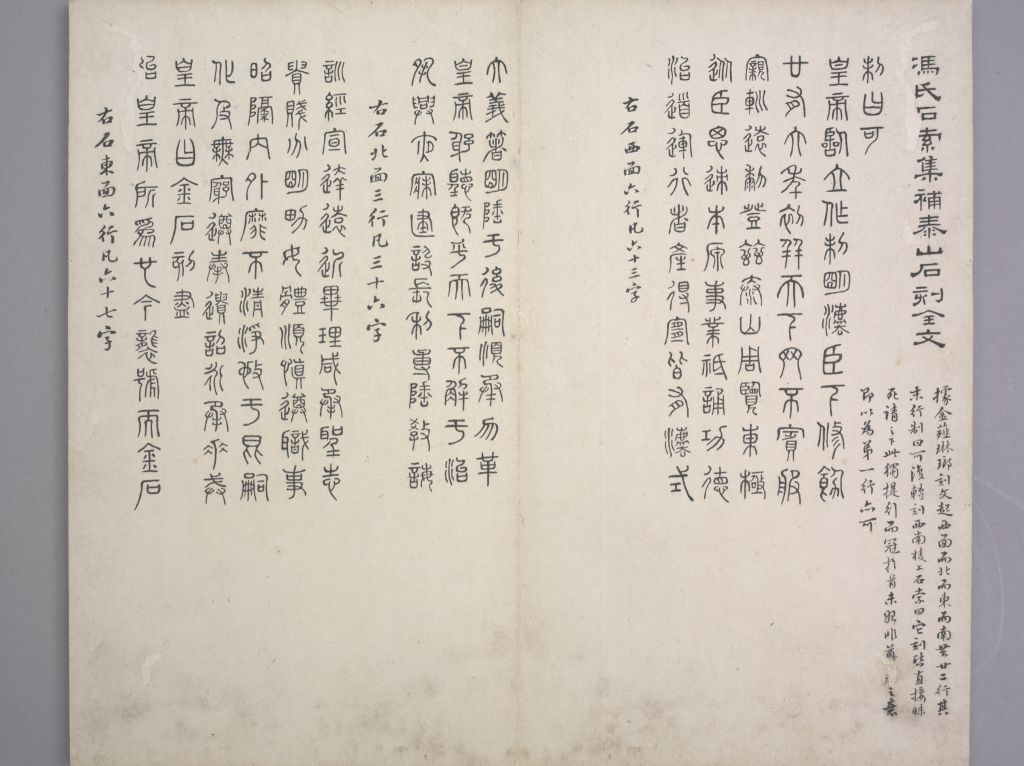 馮氏石索集補泰山石刻全文
據金薤琳琅刻文起西面而北而東而南共廿二行其
末行制曰可復轉刻西南棱上石索曰它刻皆直接昧
死請之下此獨提行而冠於首
即以為第一行亦可
制曰可
皇帝臨立作制明灋臣下修飭
廿有六年初并天下罔不賓服
寴軔遠黎登茲泰山周覽東極
從臣思迹本原事業祗誦功德
治道運行者產得宜皆有灋式
右石西面六行凡六十三字
大義箸明陲于後嗣順承勿革
皇帝躬聽既平天下不解于治
夙興夜寐建設長利專隆教誨
右石北面三行凡三十六字
訓經宣達遠近畢理咸承聖志
貴賤分明男女體順慎遵職事
昭隔內外靡不清淨施于昆嗣
化及無窮遵奉遺詔永承重戒
皇帝曰金石刻盡
始皇帝所為也今襲號而金石
右石東面六行凡六十七字